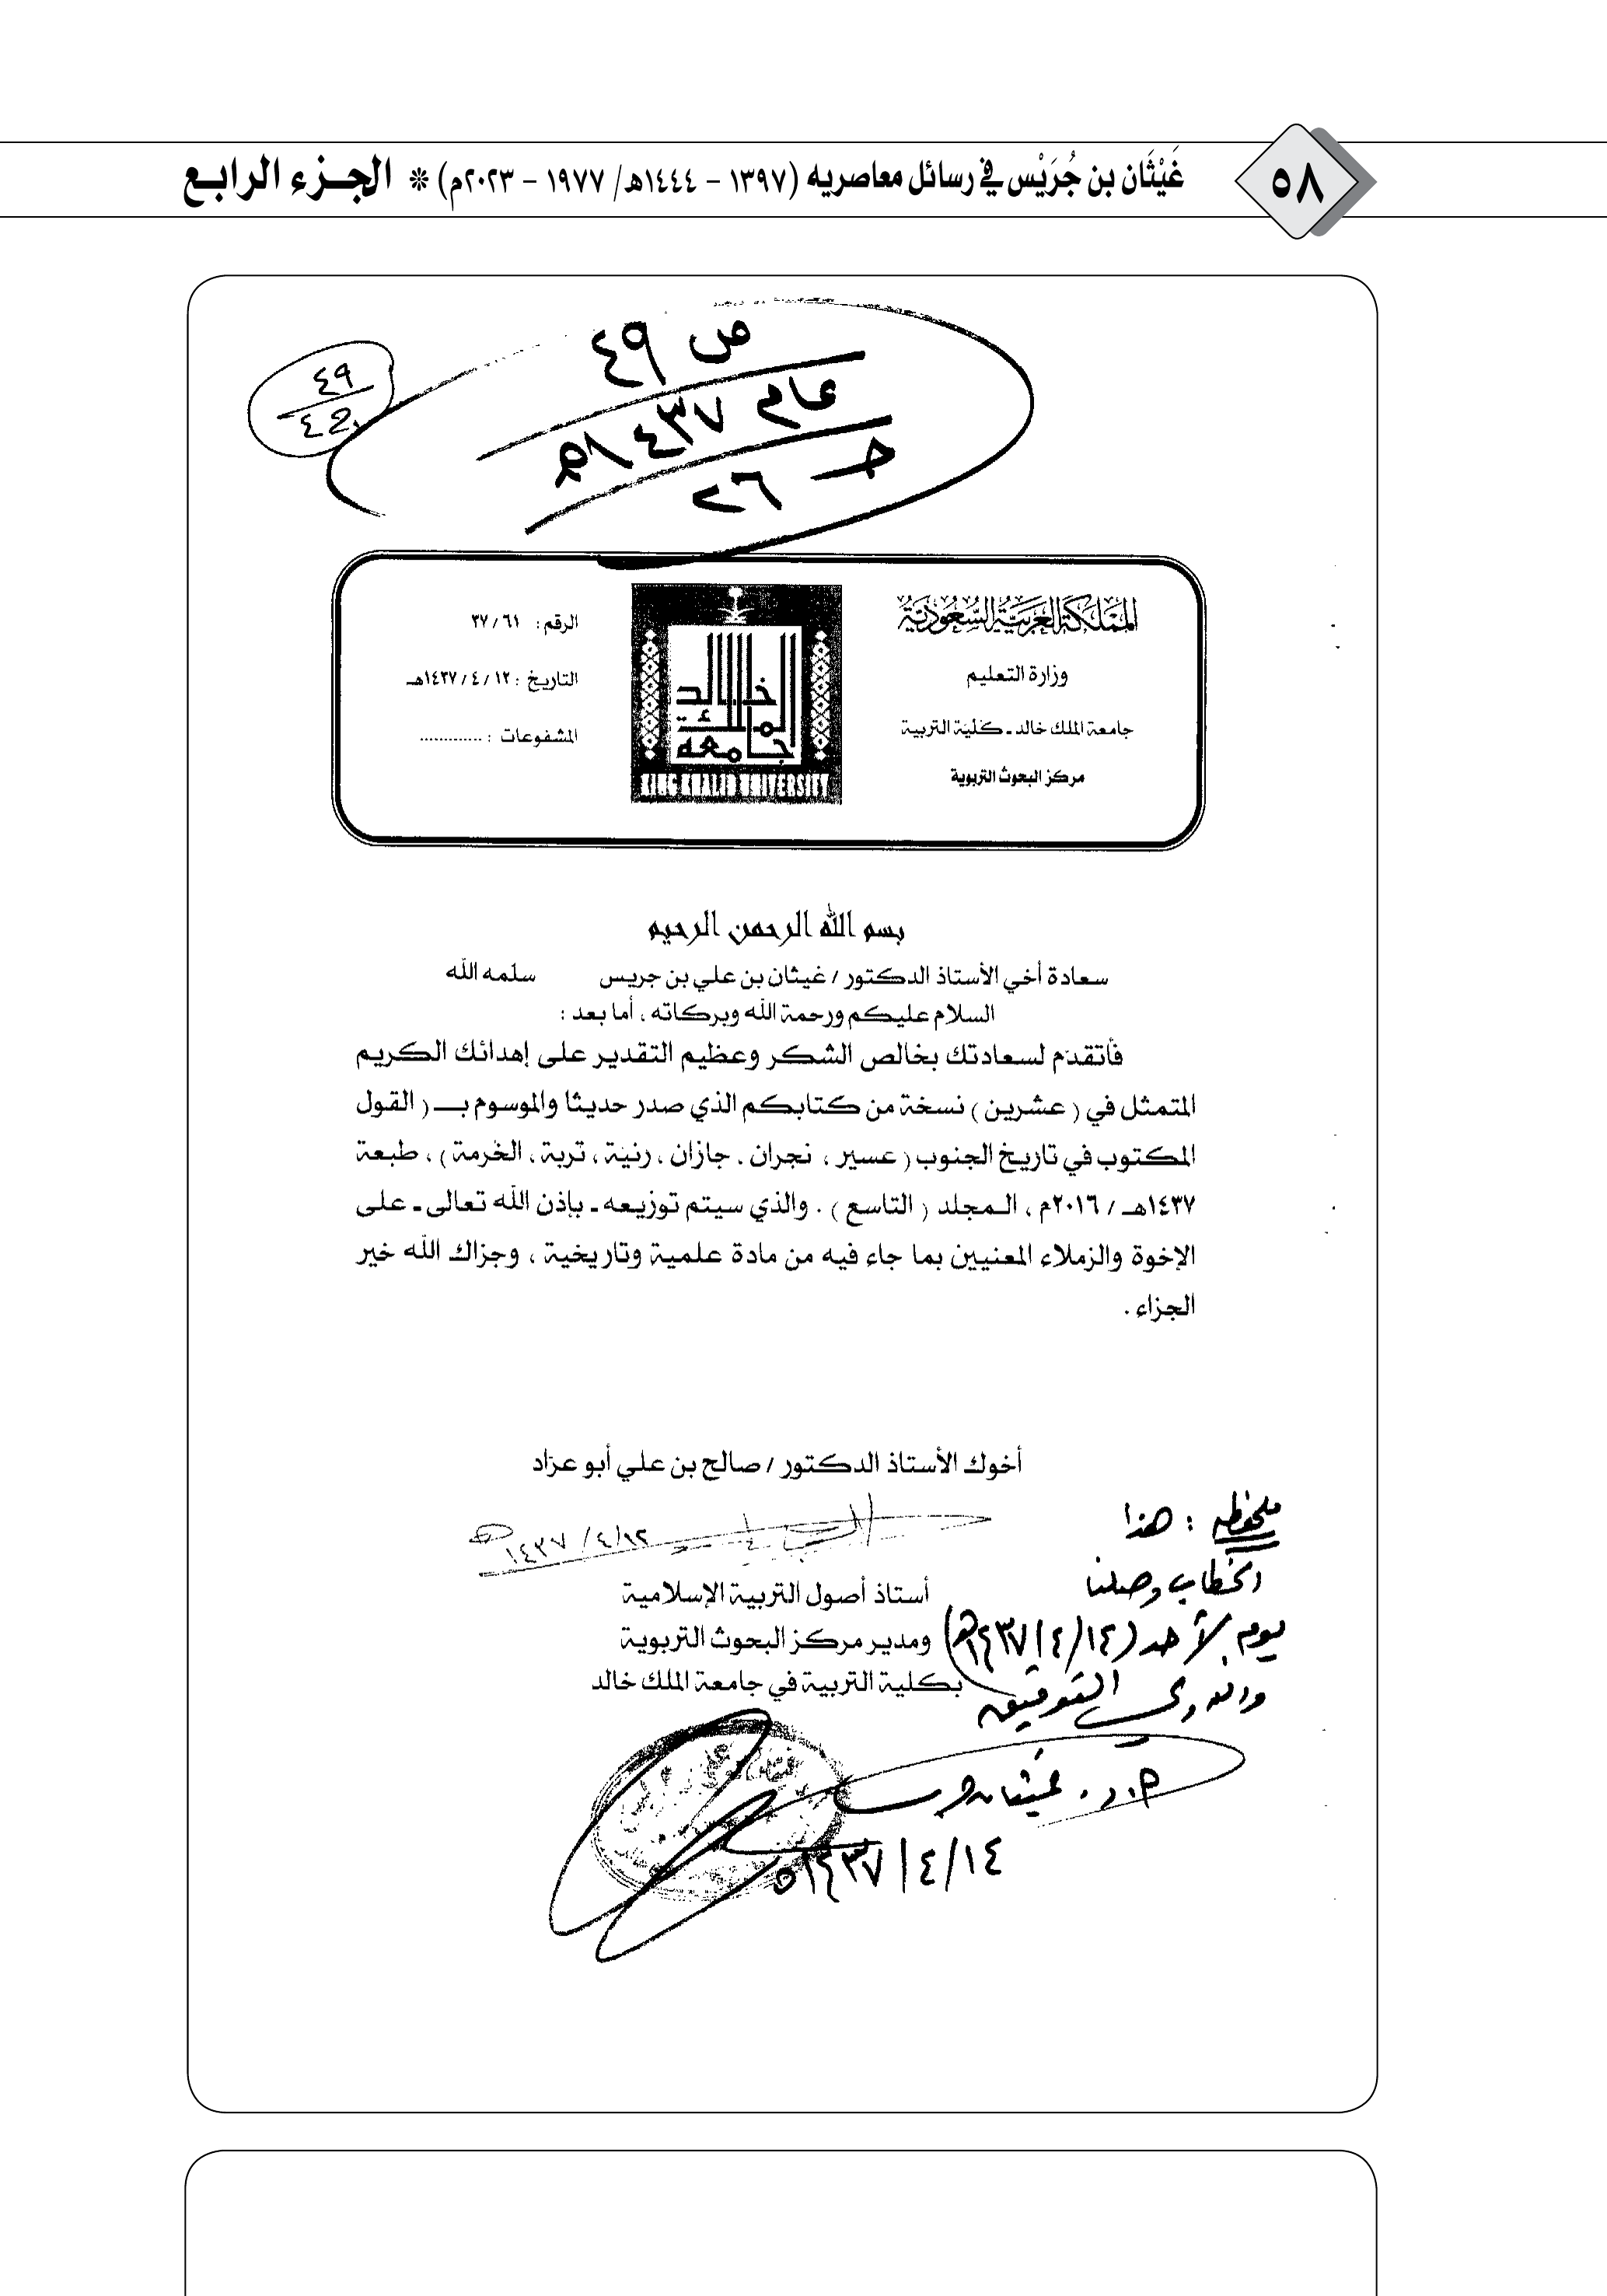 ٥٨
غَيْثَان بن جُرَيْس في رسائل معاصريه (١٣٩٧ - ١٤٤٤هـ/ ١٩٧٧ - ٢٠٢٣م) ❊ الجـزء الرابـع
ص ٤٩
عام ١٤٣٧هـ
حـ ٢٦
٤٩
المملكة العربية السعودية
وزارة التعليم
جامعة الملك خالد ـ كلية التربية
مركز البحوث التربوية
خالد
الملك
جامعة
KING KHALID UNIVERSITY
الرقم : ٣٧/٦١
التاريخ : ١٢ / ٤ / ١٤٣٧هـ
المشفوعات : .............
بسم الله الرحمن الرحيم
سعادة أخي الأستاذ الدكتور / غيثان بن علي بن جريس سلمه الله
السلام عليكم ورحمة الله وبركاته ، أما بعد :
فأتقدم لسعادتك بخالص الشكر وعظيم التقدير على إهدائك الكريم
المتمثل في ( عشرين ) نسخة من كتابكم الذي صدر حديثا والموسوم بــ ( القول
المكتوب في تاريخ الجنوب ( عسير ، نجران . جازان ، رنية ، تربة ، الخرمة ) ، طبعة
١٤٣٧هـ / ٢٠١٦م ، المجلد ( التاسع ) . والذي سيتم توزيعه ـ بإذن الله تعالى ـ على
الإخوة والزملاء المعنيين بما جاء فيه من مادة علمية وتاريخية ، وجزاك الله خير
الجزاء .
أخوك الأستاذ الدكتور / صالح بن علي أبو عزاد
١٤٣٧/٤/١٢هـ
أستاذ أصول التربية الإسلامية
ومدير مركز البحوث التربوية
بكلية التربية في جامعة الملك خالد
ملحوظة : هذا
الخطاب وصلنا
يوم الأحد (١٤/٤/١٤٣٧هـ)
والله ولي التوفيق
أ.د. غيثان جريس
١٤/٤/١٤٣٧هـ